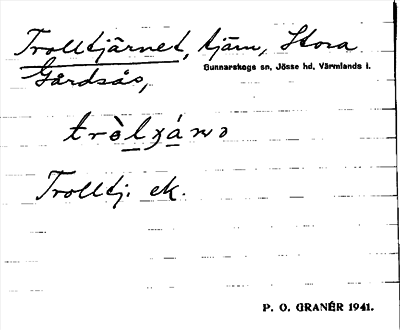 Trolltjärnet, tjärn, Stora
Gunnarskogs sn, Jösse hd, Värmlands l.
Gårdsås,
Trolltj. ek.
P. O. GRANÉR 1941.